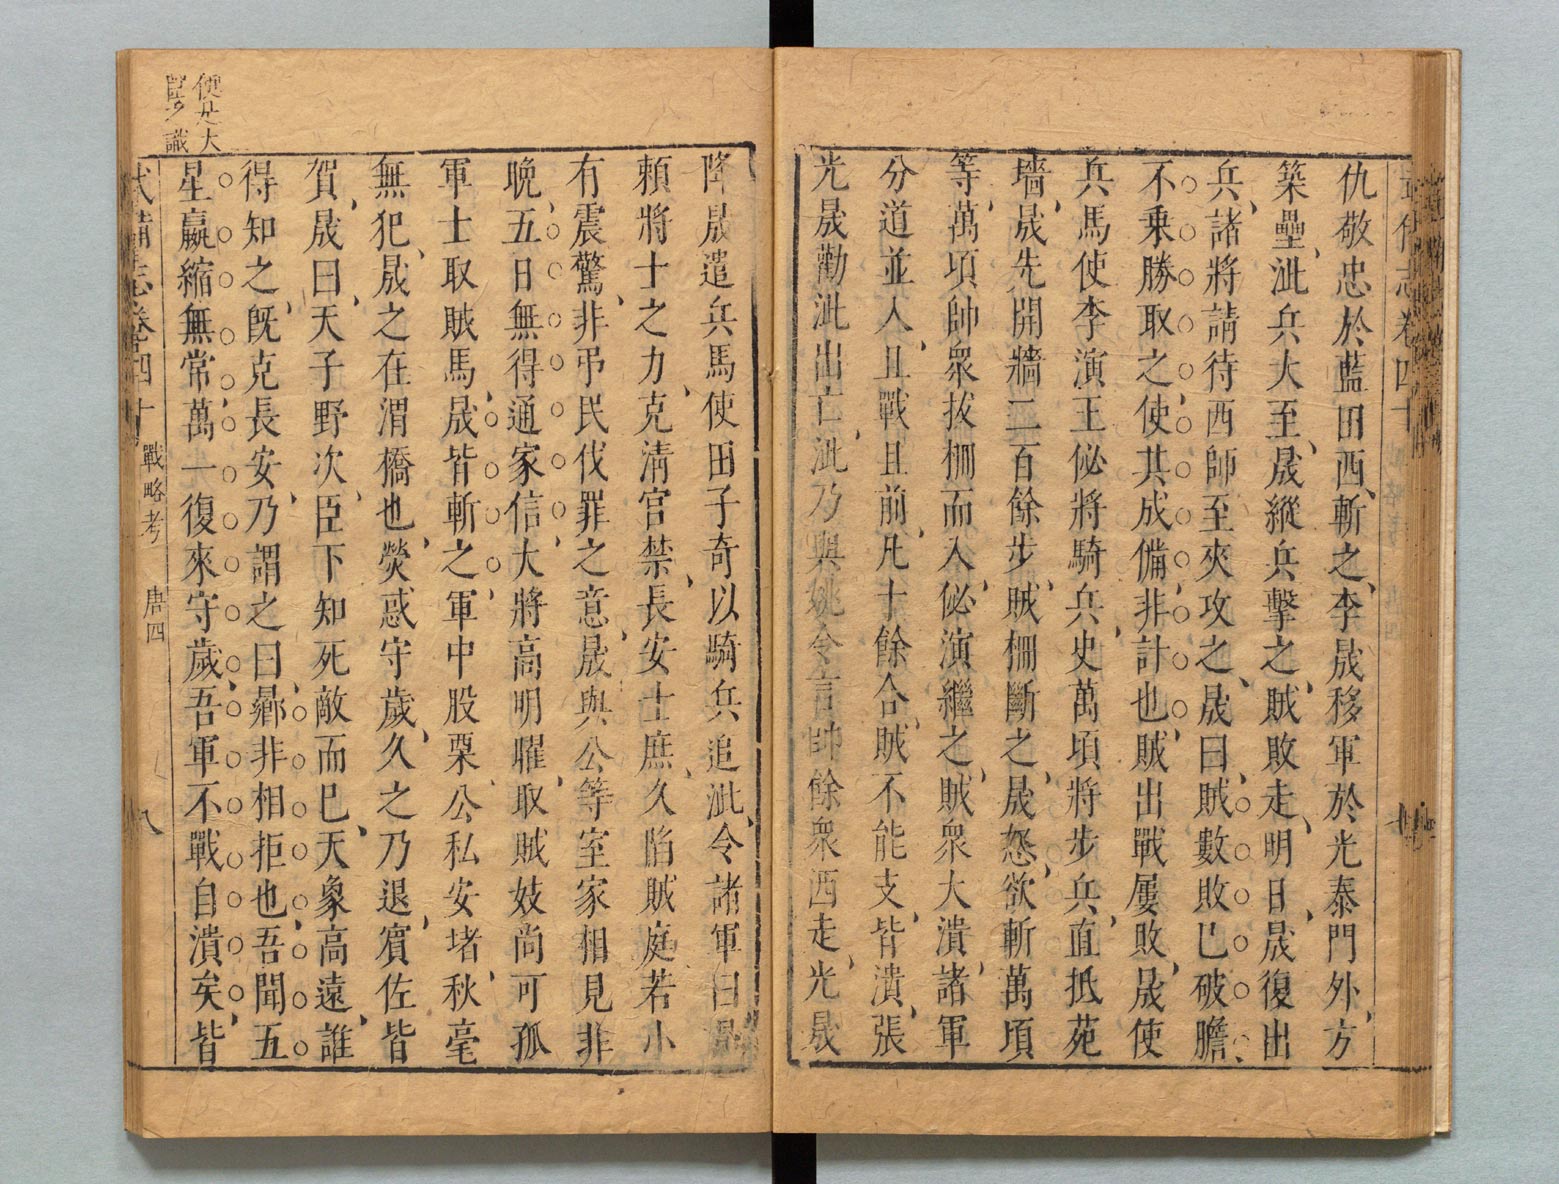 仇敬忠於藍田西、斬之、李晟移軍於光泰門外、方
築壘、泚兵大至、晟縱兵擊之、賊敗走、明日、晟復出
兵、諸將請待西師至夾攻之、晟曰、賊數敗已破膽、
不乘勝取之、使其成備、非計也、賊出戰屢敗、晟使
兵馬使李演王佖將騎兵、史萬頃將步兵、直抵苑
墻、晟先開牆二百餘步、賊柵斷之、晟怒、欲斬萬頃
等、萬頃帥衆拔柵而入、佖演繼之、賊衆大潰、諸軍
分道並入、且戰且前、凡十餘合、賊不能支、皆潰、張
光晟勸泚出亡、泚乃與姚令言帥餘衆西走、光晟
降、晟遣兵馬使田子奇以騎兵追泚、令諸軍曰、晟
賴將士之力、克清宮禁、長安士庶、久陷賊庭、若小
有震驚、非弔民伐罪之意、晟與公等室家相見非
晚、五日無得通家信、大將高明曜、取賊妓、尚可孤
軍士取賊馬、晟皆斬之、軍中股栗、公私安堵、秋毫
無犯、晟之在渭橋也、熒惑守歲、久之乃退、賓佐皆
賀、晟曰、天子野次、臣下知死敵而已、天象高遠、誰
得知之、旣克長安、乃謂之曰、曏非相拒也、吾聞五
星嬴縮無常、萬一復來守歲、吾軍不戰自潰矣、皆
便是大
臣之識
武備志卷四十
戰略考
唐四
八